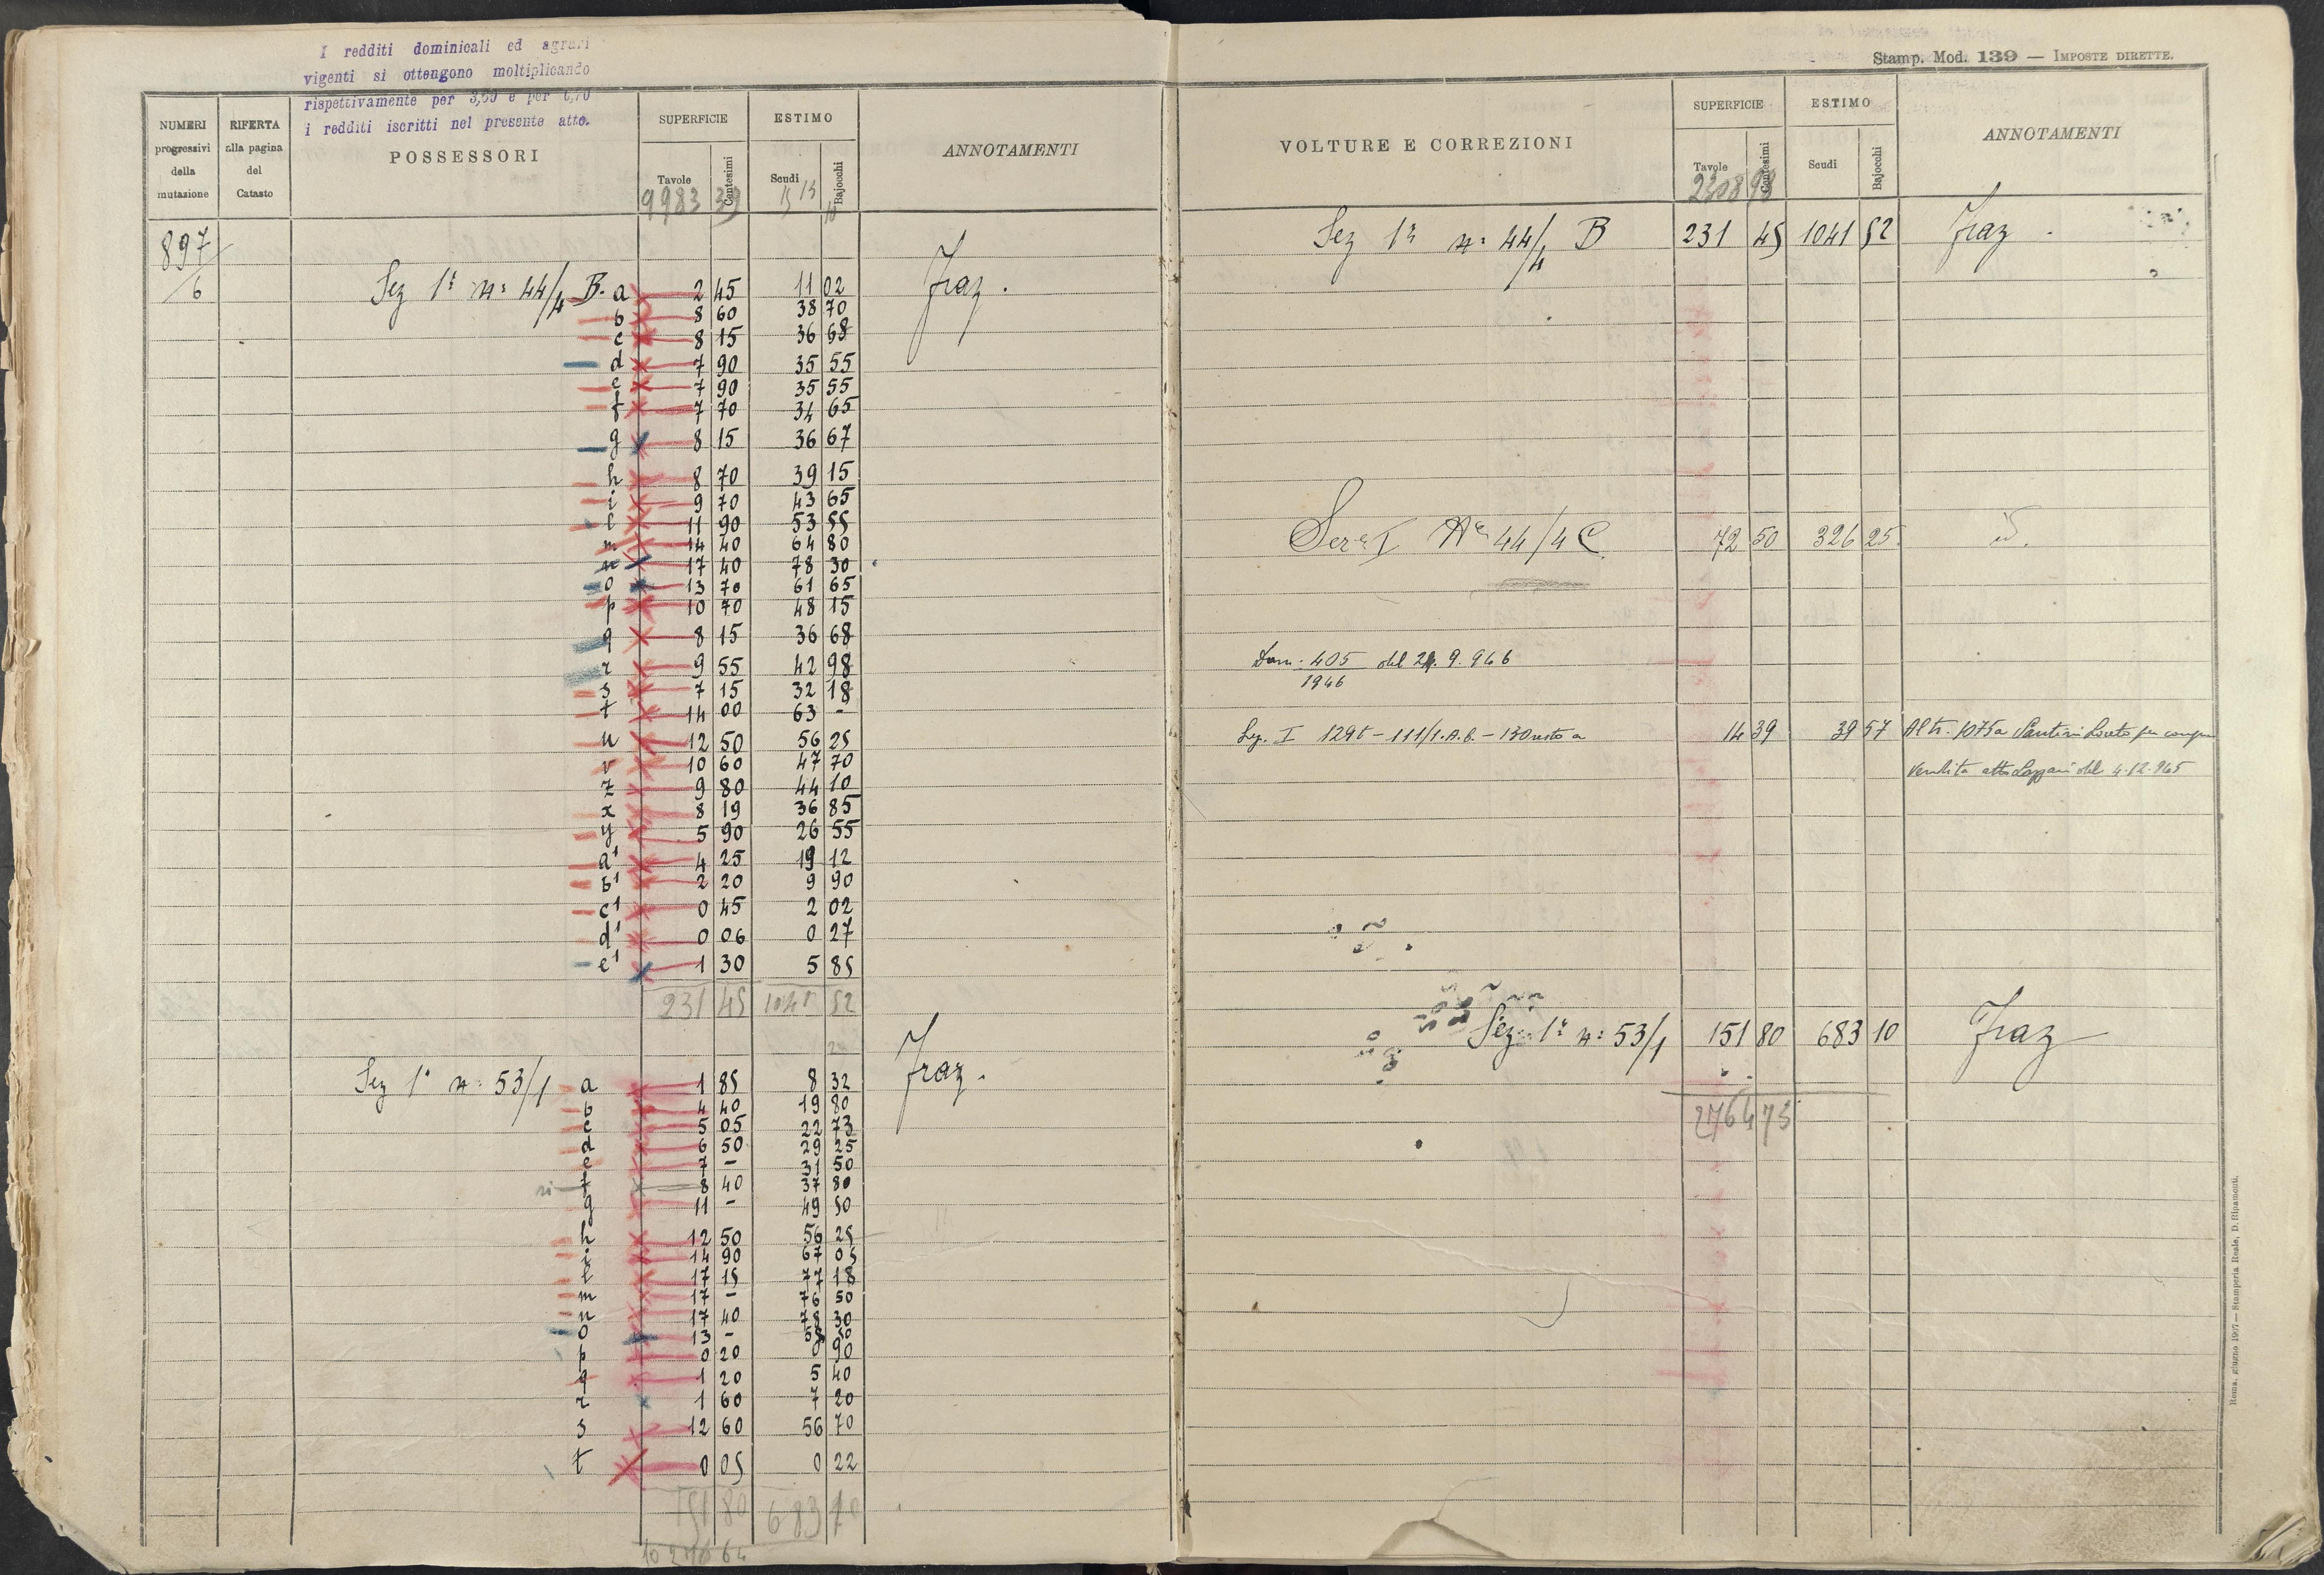 I redditi dominicali ed agrari
vigenti si ottengono moltiplicando
rispettivamente per 3,60 e per
i redditi iscritti nel presente atto.
NUMERI progressivi della mutazione
RIFERTA alla pagina del Catasto
POSSESSORI
SUPERFICIE
Tavole
Centesimi
ESTIMO
Scudi
Bajocchi
ANNOTAMENTI
9983 39
897/6
Sez 1ª n: 44/4 B. a 2 45 11 02 Fraz.
b 8 60 38 70
c 8 15 36 68
d 7 90 35 55
e 7 90 35 55
f 7 70 34 65
g 8 15 36 67
h 8 70 39 15
i 9 70 43 65
l 11 90 53 55
m 14 40 64 80
n 17 40 78 30
o 13 70 61 65
p 10 70 48 15
q 8 15 36 68
r 9 55 42 98
s 7 15 32 18
t 14 00 63 -
u 12 50 56 25
v 10 60 47 70
z 9 80 44 10
x 8 19 36 85
y 5 90 26 55
a¹ 4 25 19 12
b¹ 2 20 9 90
c¹ 0 45 2 02
d¹ 0 06 0 27
e¹ 1 30 5 85
231 45 52
Sez 1ª n: 53/1 a 1 85 8 32 Fraz.
b 4 40 19 80
c 5 05 22 73
d 6 50 29 25
e 7 - 31 50
f 8 40 37 80
g 11 - 49 50
h 12 50 56 25
i 14 90 67 05
l 17 15 77 18
m 17 - 76 50
n 17 40 78 30
o 13 - 58 50
p 0 20 0 90
q 1 20 5 40
r 1 60 7 20
s 12 60 56 70
t 0 05 0 22
151 80 683 10
Stamp. Mod. 139 — IMPOSTE DIRETTE.
VOLTURE E CORREZIONI
SUPERFICIE
Tavole
Centesimi
ESTIMO
Scudi
Bajocchi
ANNOTAMENTI
Sez 1ª n: 44/4 B 231 45 1041 52 Fraz.
Sez I Nº 44/4 C. 72 50 326 25 id.
405/1946 del 24. 9. 946
Sez. I 129b - 111/1.A.B. - 130 resto a 14 39 39 57 Alt. 1075 a Santini Loreto per compra
Vendita atto Lazzari del 4.12.945
Sez 1ª n: 53/1 151 80 683 10 Fraz
Roma, giugno 1907 — Stamperia Reale, D. Ripamonti.